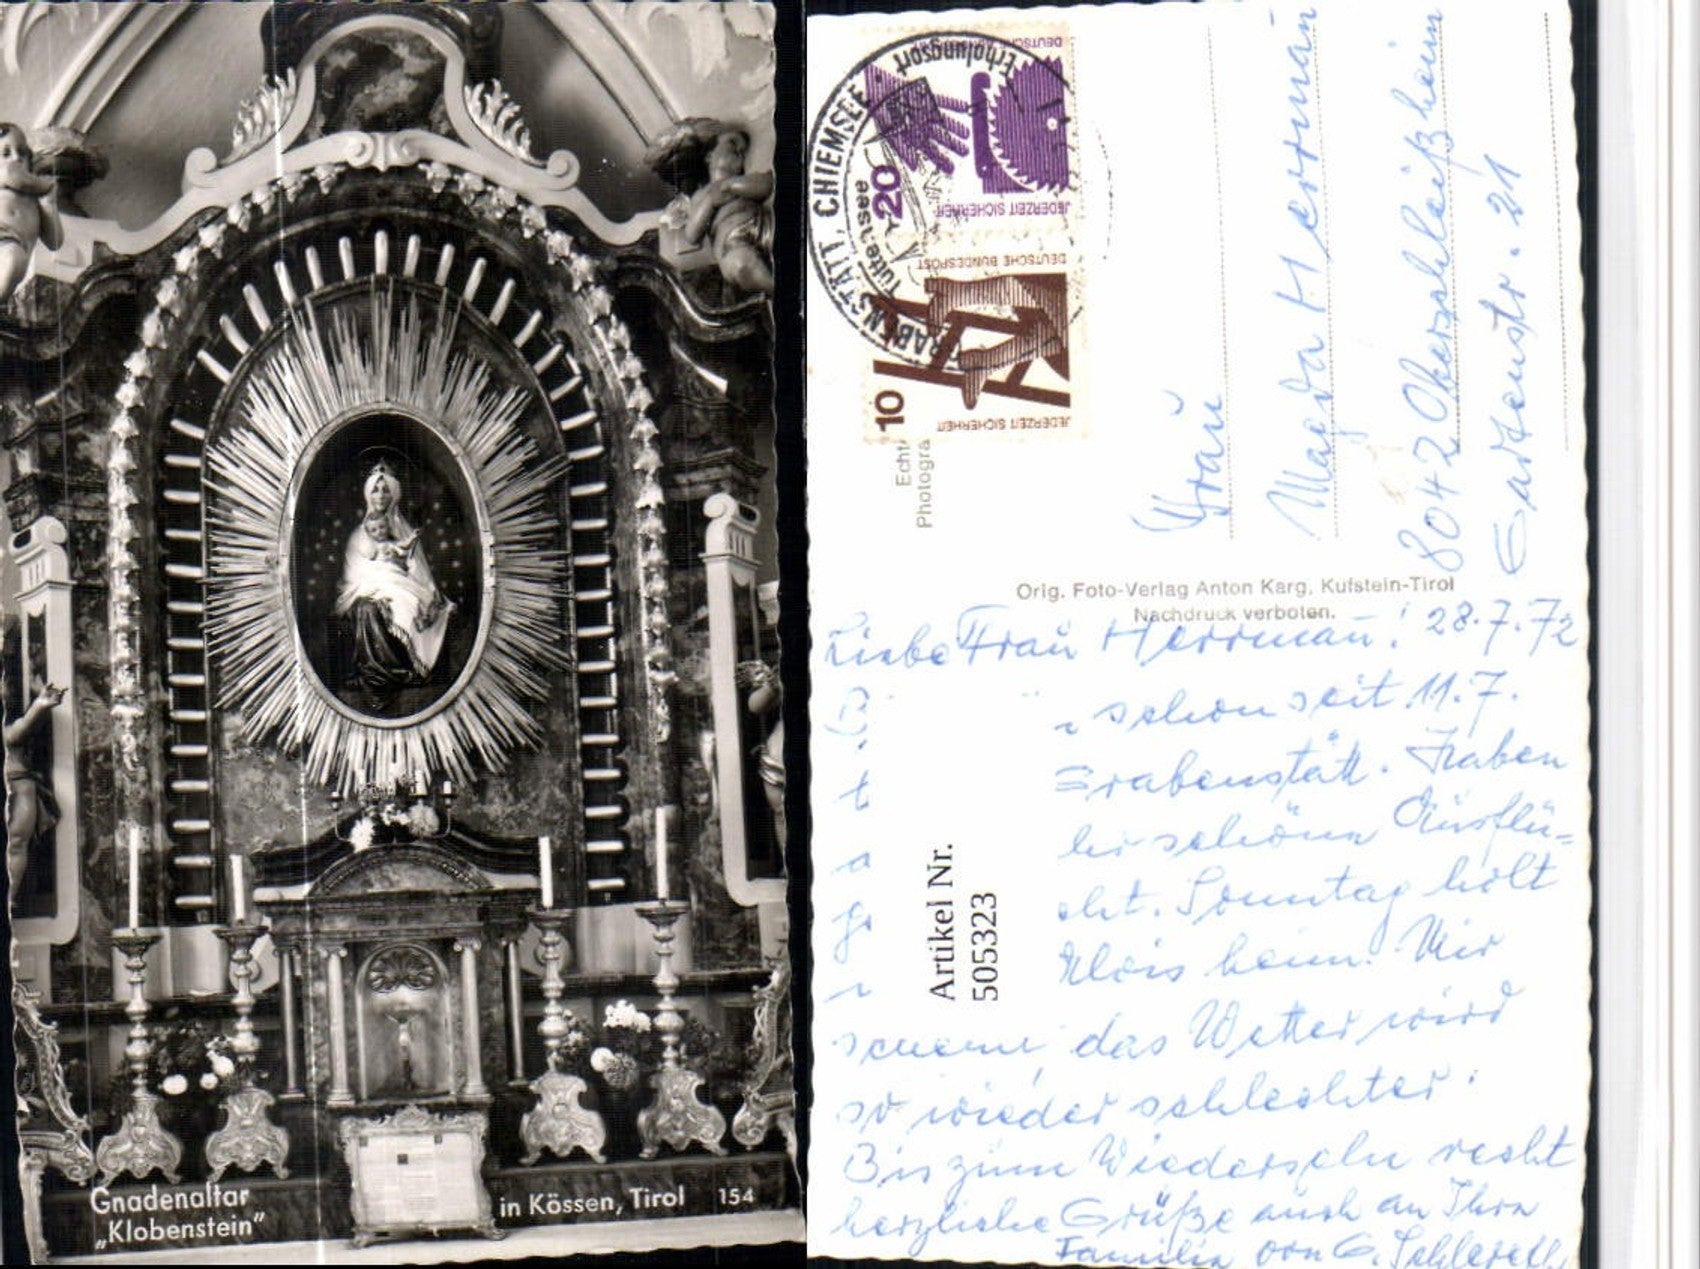 Gnadenaltar
„Klobenstein”
in Kössen, Tirol 154
DEUTSCHE BUNDESPOST
JEDERZEIT SICHERHEIT
20
DEUTSCHE BUNDESPOST
JEDERZEIT SICHERHEIT
10
GRABENSTÄTT, CHIEMSEE
Tüttensee
Erholungsort
Echt
Photogra
Frau
Magda Herrmann
8042 Oberschleißheim
Gartenstr. 21
Orig. Foto-Verlag Anton Karg, Kufstein-Tirol
Nachdruck verboten.
Liebe Frau Herrmann! 28.7.72
schon seit 11.7.
Grabenstätt. Haben
schöne Ausflü-
cht. Sonntag holt
Alois heim. Mir
scheint, das Wetter wird
so wieder schlechter.
Bis zum Wiedersehn recht
herzliche Grüße auch an Ihre
Familie von G.
Artikel Nr.
505323